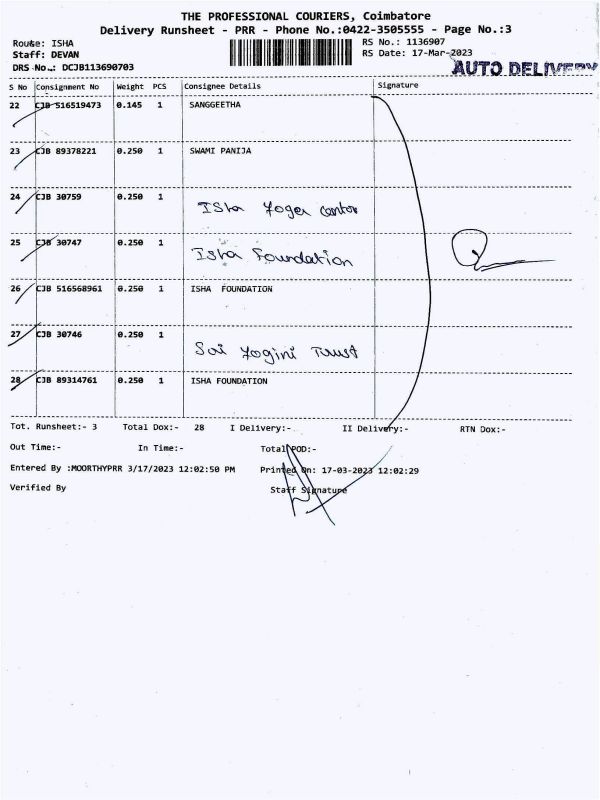 THE PROFESSIONAL COURIERS, Coimbatore
Delivery Runsheet - PRR - Phone No.:0422-3505555 - Page No.:3
Route: ISHA RS No.: 1136907
Staff: DEVAN RS Date: 17-Mar-2023
DRS No.: DCJB113690703 AUTO DELIVERY
S No Consignment No Weight PCS Consignee Details Signature
22 CJB 516519473 0.145 1 SANGGEETHA
23 CJB 89378221 0.250 1 SWAMI PANIJA
24 CJB 30759 0.250 1 Isha Yoga
25 CJB 30747 0.250 1 Isha Foundation
26 CJB 516568961 0.250 1 ISHA FOUNDATION
27 CJB 30746 0.250 1 Sai Yogini Trust
28 CJB 89314761 0.250 1 ISHA FOUNDATION
Tot. Runsheet:- 3 Total Dox:- 28 I Delivery:- II Delivery:- RTN Dox:-
Out Time:- In Time:- Total POD:-
Entered By :MOORTHYPRR 3/17/2023 12:02:50 PM Printed On: 17-03-2023 12:02:29
Verified By Staff Signature